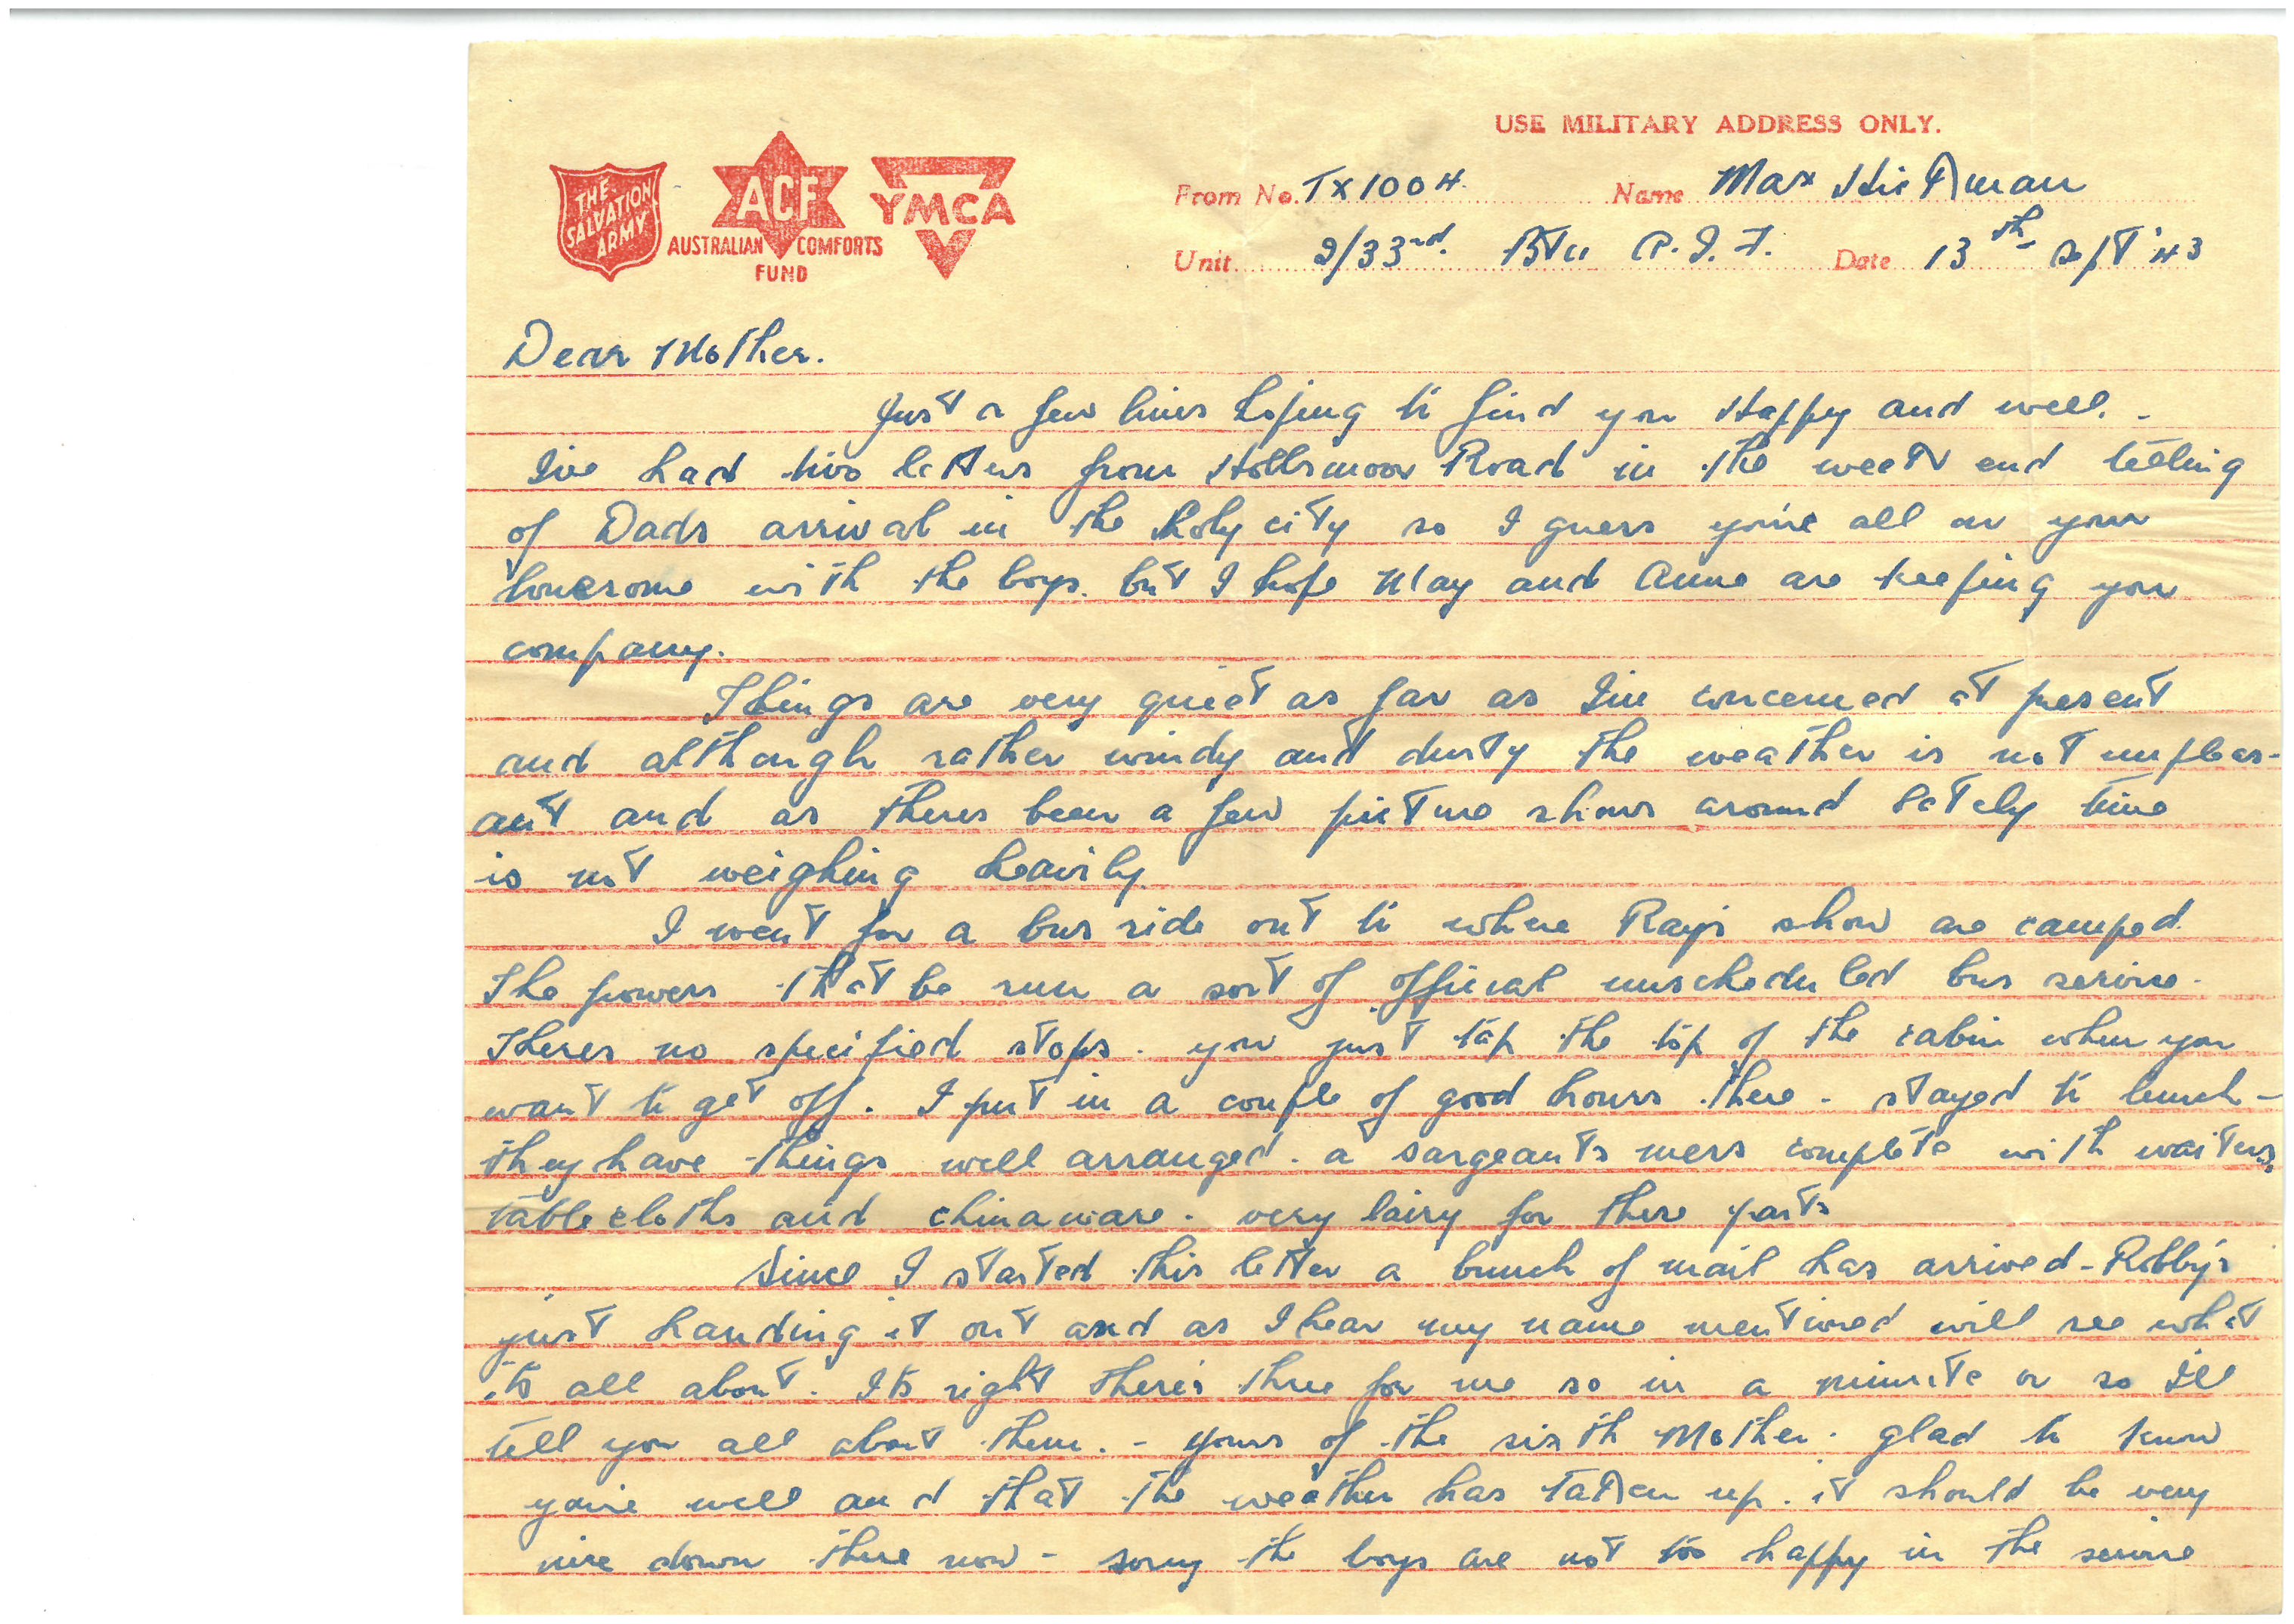 USE MILITARY ADDRESS ONLY.
THE SALVATION ARMY
ACF
AUSTRALIAN COMFORTS FUND
YMCA
From No. TX1004. Name Max Hickman
Unit 2/33rd. Btn A.I.F. Date 13th Sept '43
Dear Mother.
Just a few lines hoping to find you Happy and well. -
I've had two letters from Road in the week end telling
of Dads arrival in the Holy city so I guess you're all on your
lonesome with the boys. but I hope May and Anne are keeping you
company.
Things are very quiet as far as I'm concerned at present
and although rather windy and dusty the weather is not unpleas-
ant and as theres been a few picture shows around lately time
is not weighing heavily.
I went for a bus ride out to where Ray's show are camped.
The powers that be run a sort of offical unscheduled bus service.
Theres no specified stops. you just tap the top of the cabin when you
want to get off. I put in a couple of good hours there - stayed to lunch -
they have things well arranged. a sargeants mess complete with waiters,
tablecloths and chinaware. very lairy for these parts
Since I started this letter a bunch of mail has arrived - Robby's
just handing it out and as I hear my name mentioned will see what
its all about. Its right there's three for me so in a minute or so I'll
tell you all about them. - yours of the sixth Mother. glad to know
you're well and that the weather has taken up. it should be very
nice down there now - sorry the boys are not too happy in the service